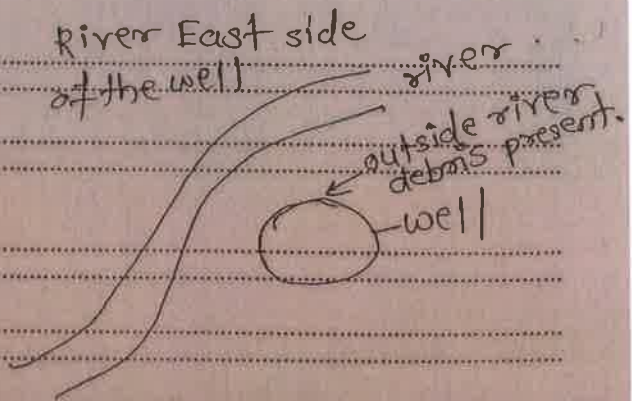 River East side
of the well
river
outside river
debris present.
well